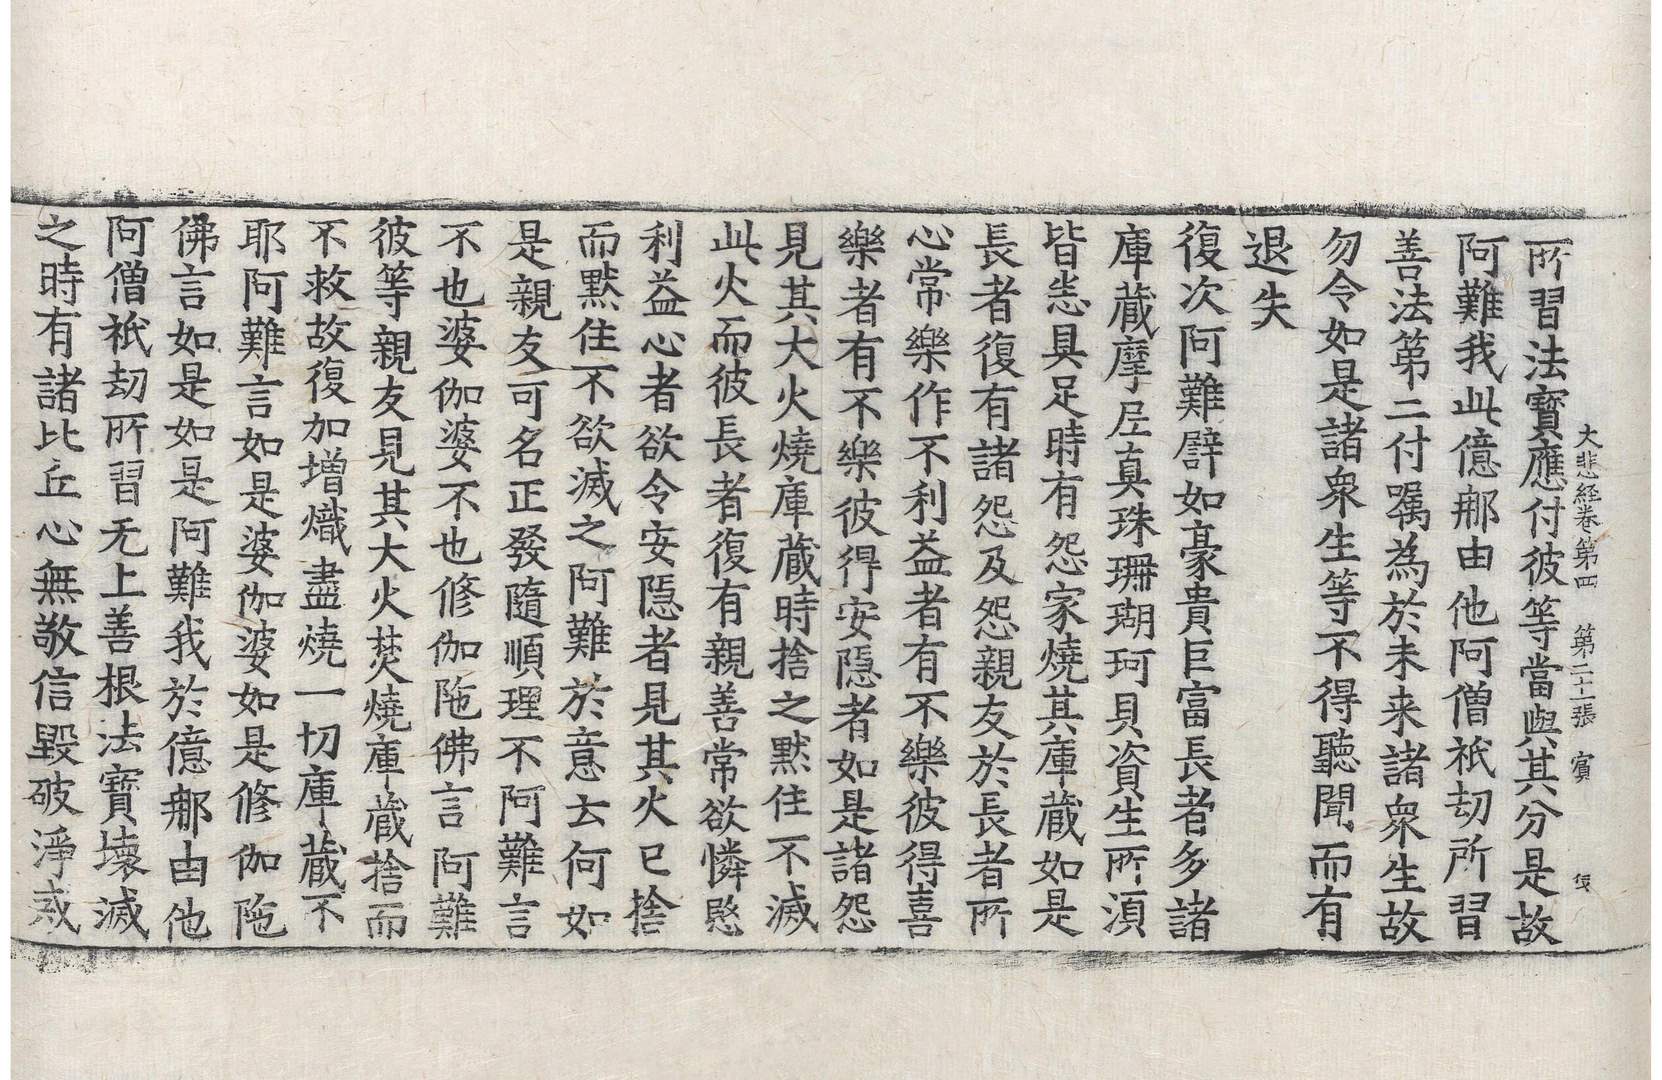 大悲経卷第四　第二十一張　賓
所習法寶應付彼等當與其分是故
阿難我此億那由他阿僧祇劫所習
善法第二付囑為於未来諸衆生故
勿令如是諸衆生等不得聽聞而有
退失
復次阿難譬如豪貴巨富長者多諸
庫藏摩尼真珠珊瑚珂貝資生所湏
皆悉具足時有怨家燒其庫藏如是
長者復有諸怨及怨親友於長者所
心常樂作不利益者有不樂彼得喜
樂者有不樂彼得安隱者如是諸怨
見其大火燒庫藏時捨之默住不滅
此火而彼長者復有親善常欲憐愍
利益心者欲令安隱者見其火已捨
而默住不欲滅之阿難於意云何如
是親友可名正發隨順理不阿難言
不也婆伽婆不也修伽陁佛言阿難
彼等親友見其大火焚燒庫藏捨而
不救故復加增熾盡燒一切庫藏不
耶阿難言如是婆伽婆如是修伽陁
佛言如是如是阿難我於億那由他
阿僧祇劫所習无上善根法寶壞滅
之時有諸比丘心無敬信毀破淨戒